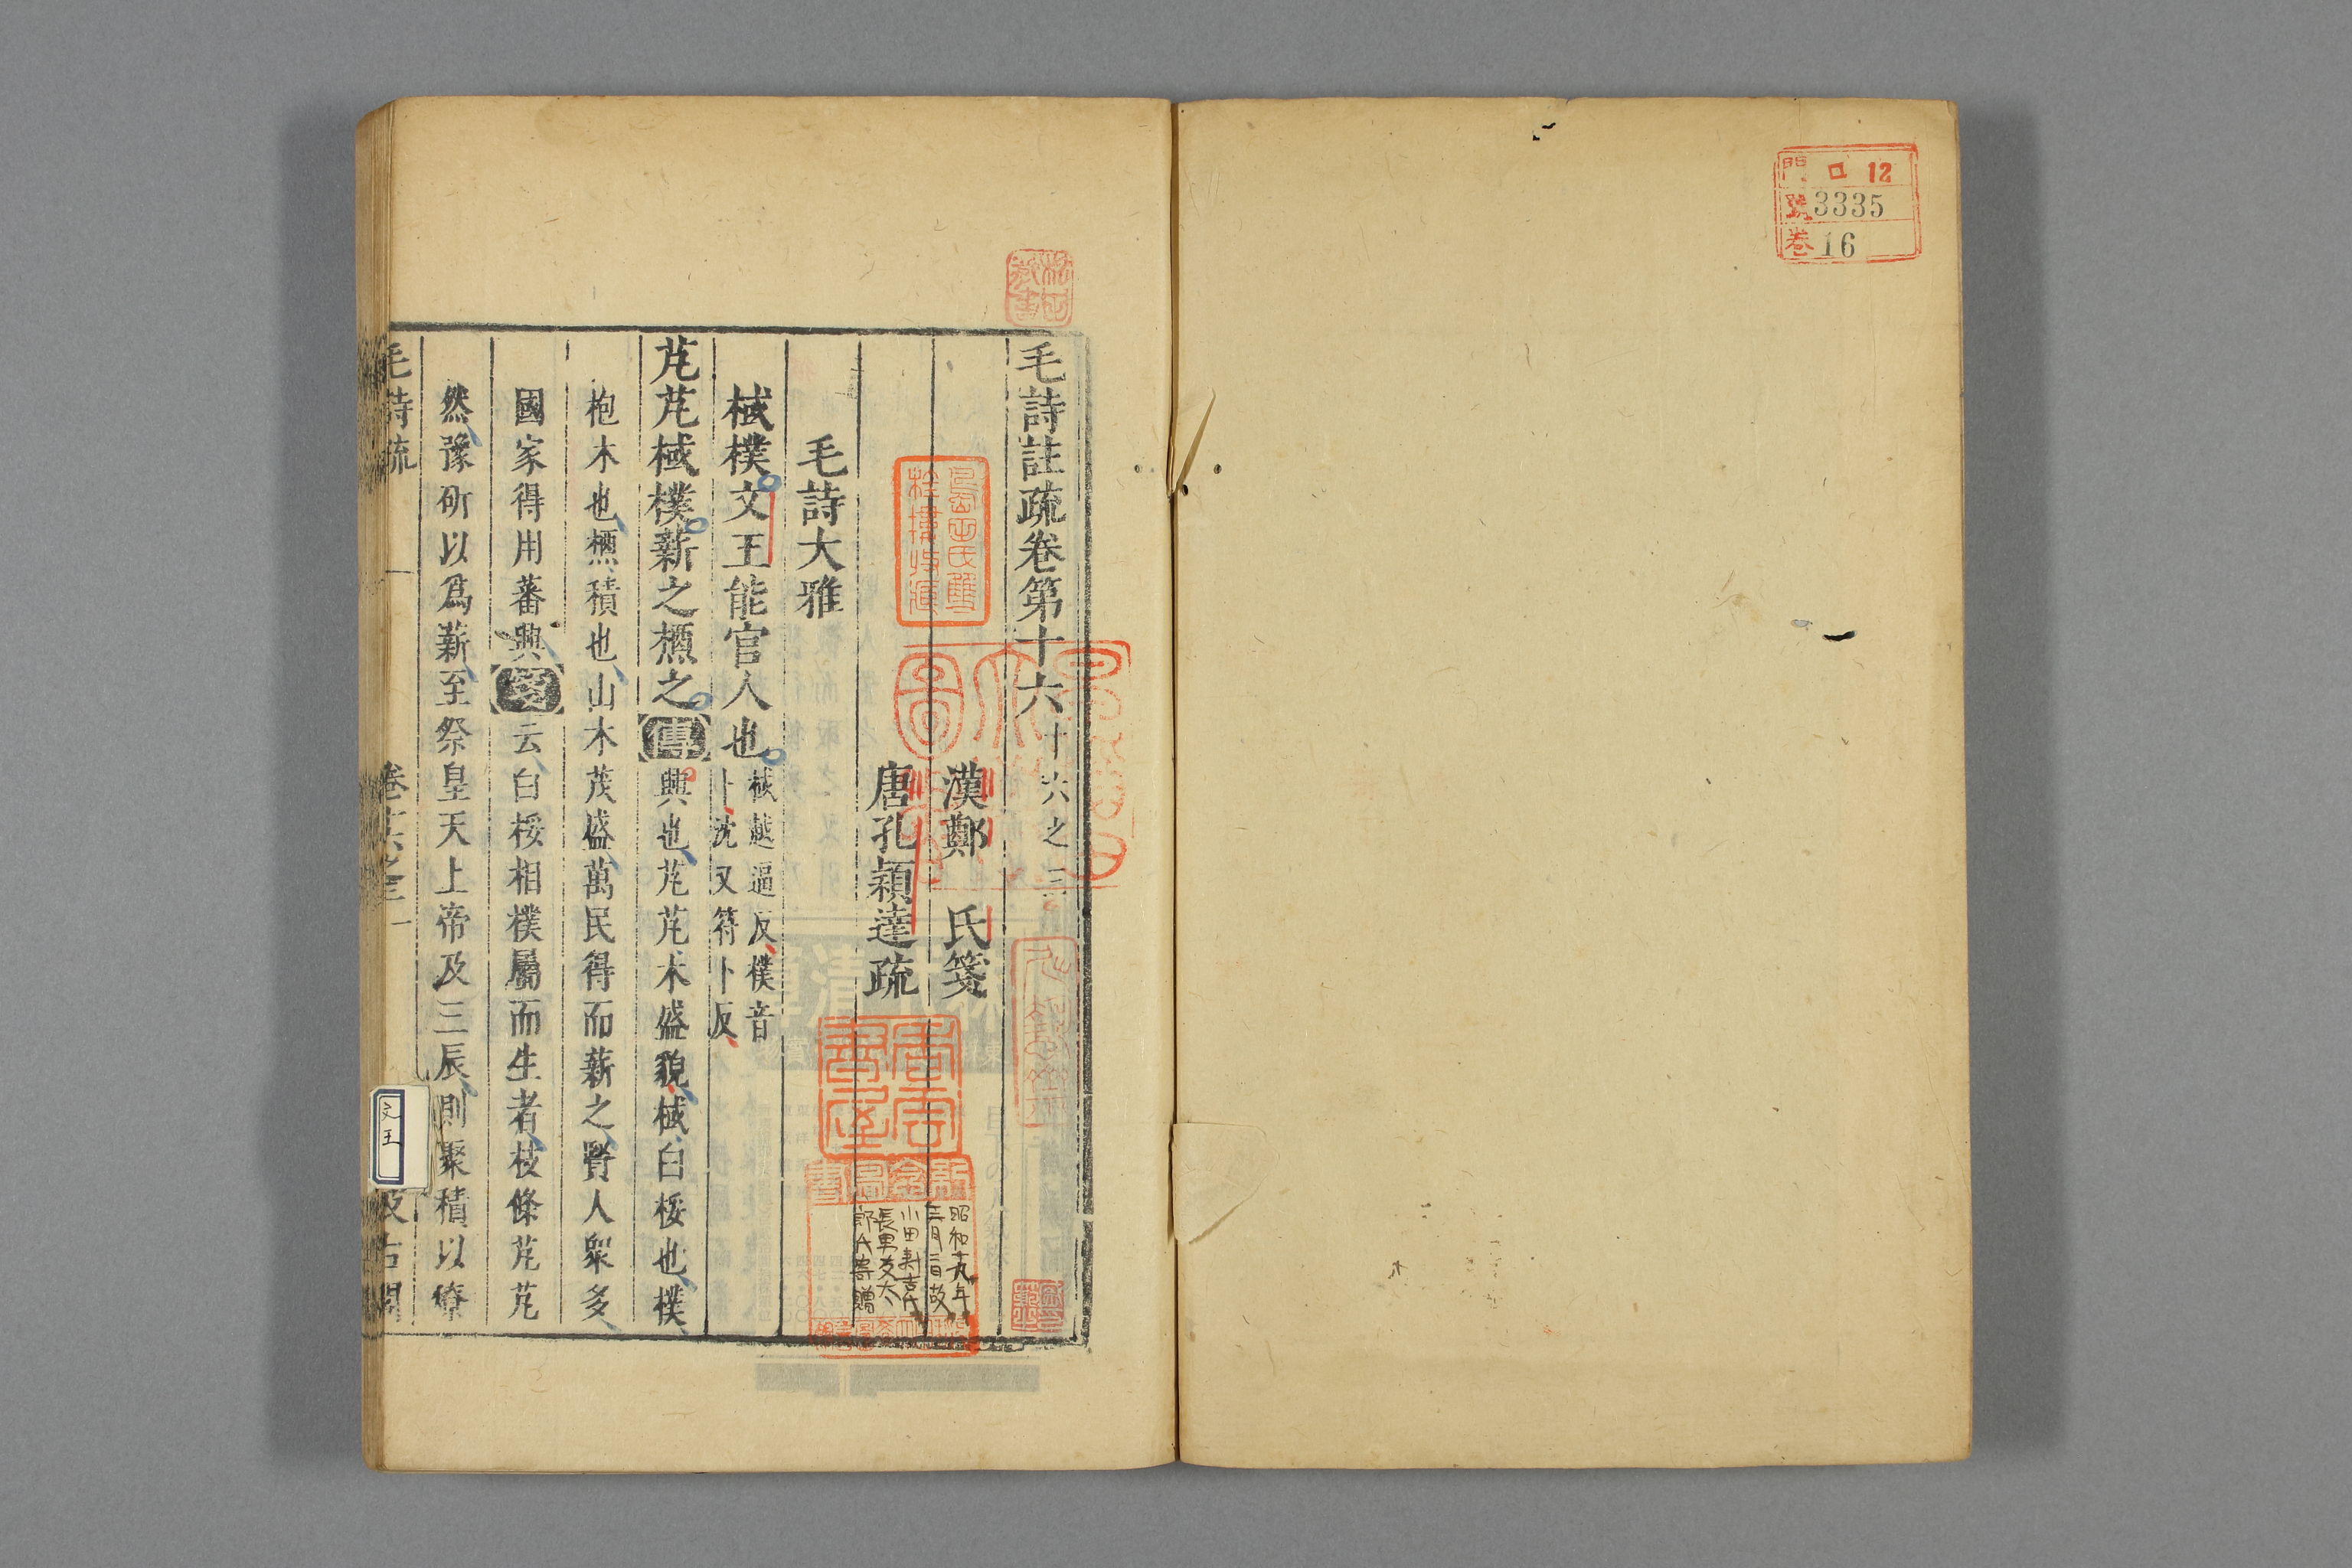 門 ロ 12
號 3335
卷 16
毛詩註疏卷第十六 十六之三
漢鄭 氏箋
唐孔穎達疏
毛詩大雅
棫樸文王能官人也 棫越逼反樸音
卜沈又符卜反
芃芃棫樸薪之槱之 傳 興也芃芃木盛貌棫白桵也樸
枹木也槱積也山木茂盛萬民得而薪之賢人衆多
國家得用蕃興 箋 云白桵相樸屬而生者枝條芃芃
然豫斫以爲薪至祭皇天上帝及三辰則聚積以燎
毛詩疏 卷十六之三 一 汲古閣
文王
昭和十九年
三月二日故
小田壽吉氏
長男友太
郎氏寄贈